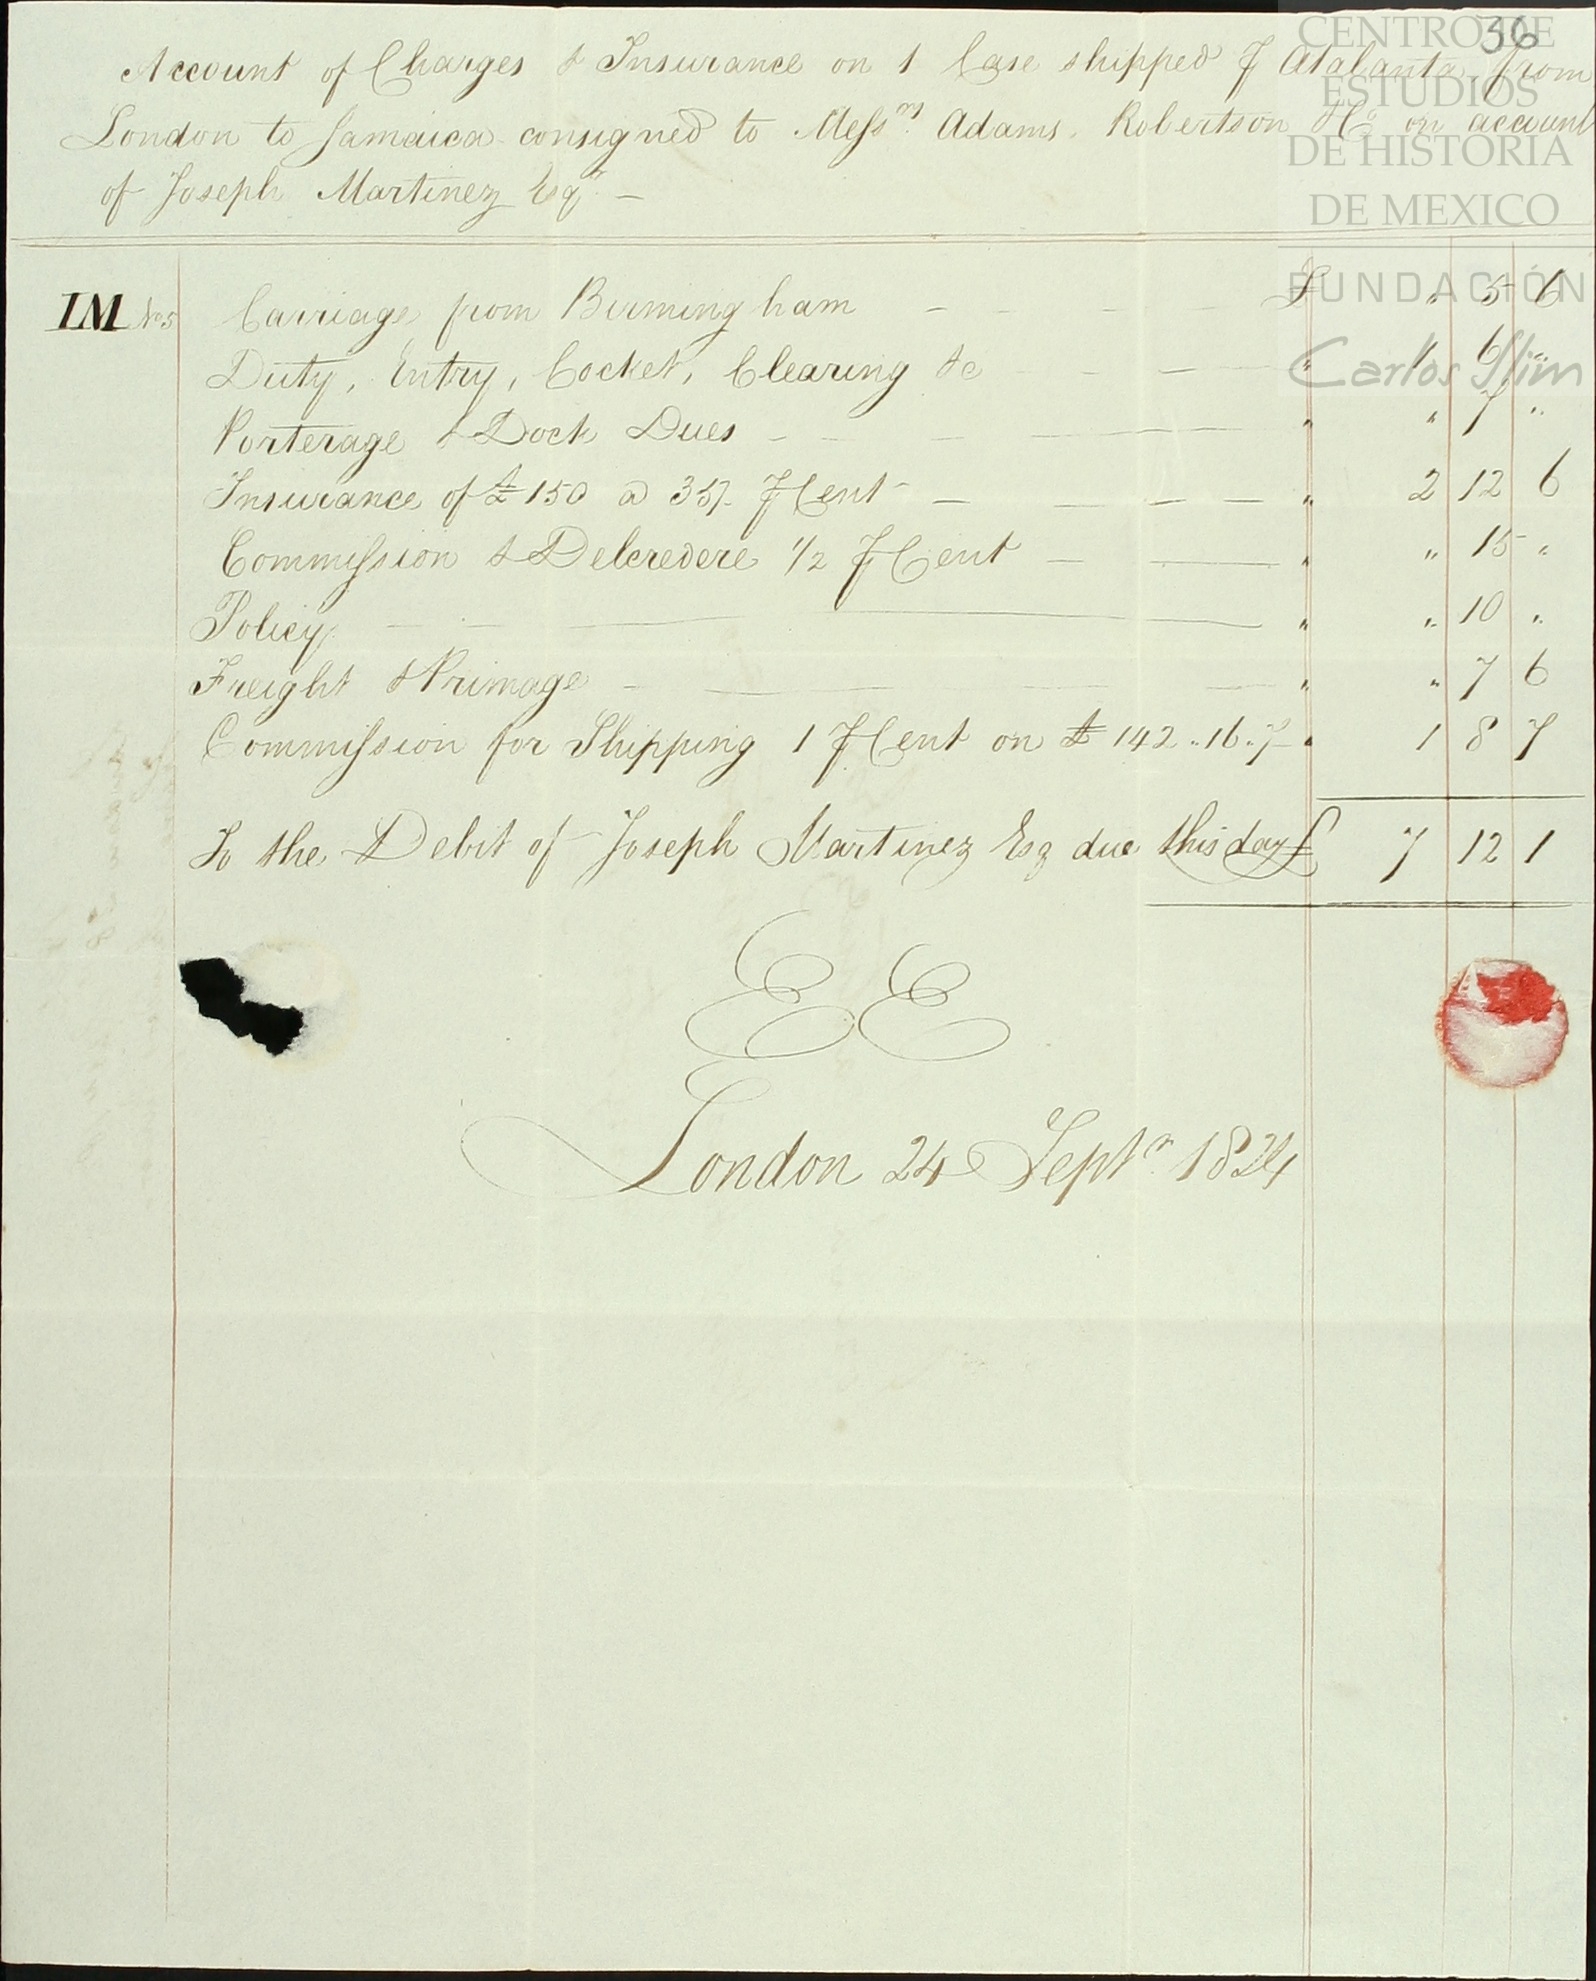 36
CENTRO DE
ESTUDIOS
DE HISTORIA
DE MEXICO
FUNDACIÓN
Carlos Slim
Account of Charges & Insurance on 1 Case shipped ⅌ Atalanta from
London to Jamaica consigned to Messrs Adams, Robertson &Co on account
of Joseph Martinez Esqr —
IM No 5 Carriage from Birmingham £ " 5 6
Duty, Entry, Cocket, Clearing &c " 1 6 "
Porterage & Dock Dues " " 7 "
Insurance of £150 @ 35/- ⅌ Cent " 2 12 6
Commission & Delcredere 1/2 ⅌ Cent " " 15 "
Policy " " 10 "
Freight & Primage " " 7 6
Commission for Shipping 1 ⅌ Cent on £ 142..16.7 " 1 8 7
To the Debit of Joseph Martinez Esq due this day £ 7 12 1
EE
London 24 Septr 1824